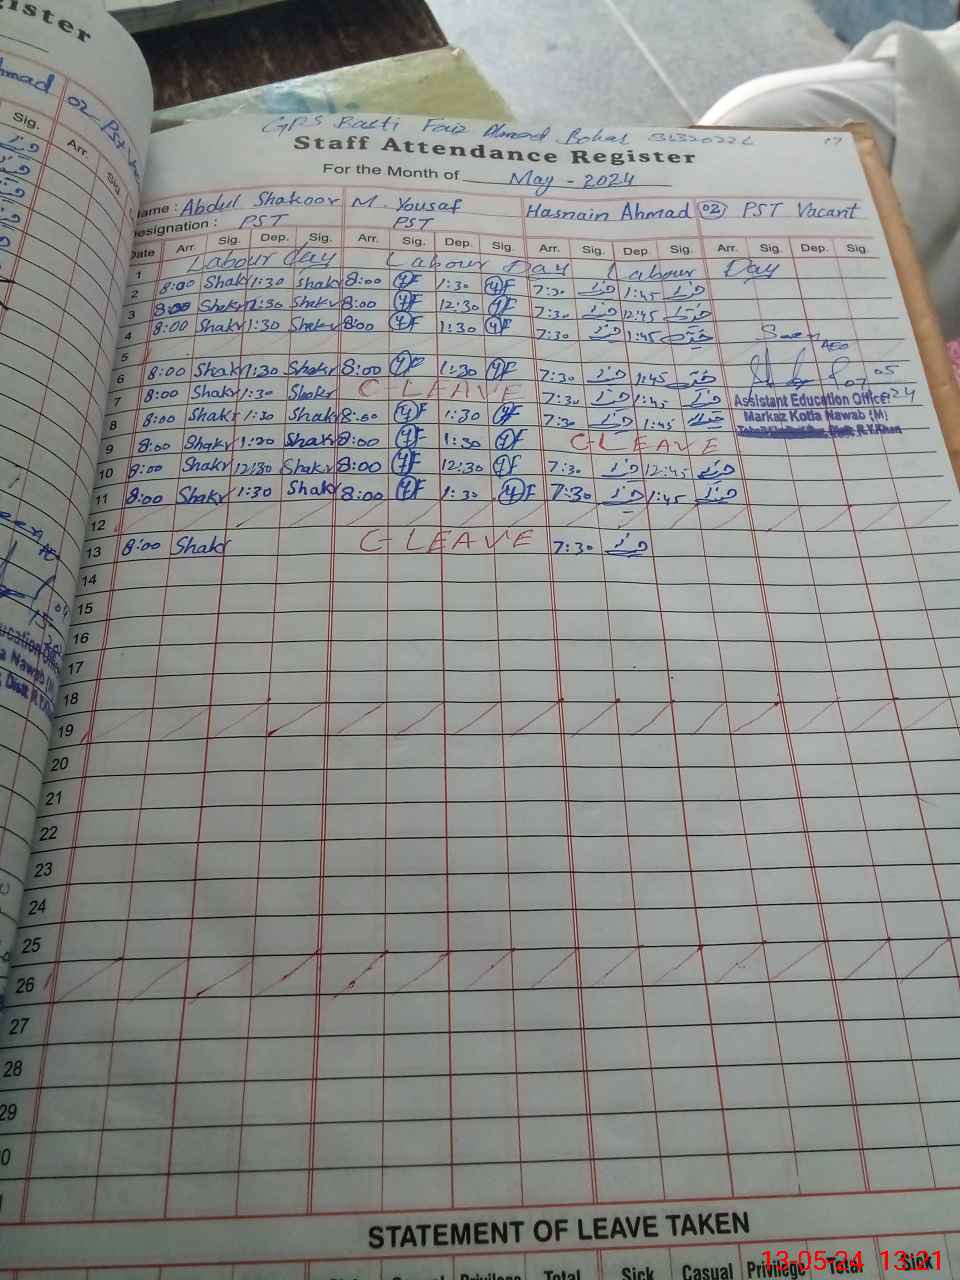 Register
Sig.
Arr.
Sig.
GPS Basti Faiz Ahmad Bohar 31320226 17
Staff Attendance Register
For the Month of May - 2024
Name : Abdul Shakoor M. Yousaf Hasnain Ahmad 02 PST Vacant
Designation : PST PST
Date Arr. Sig. Dep. Sig. Arr. Sig. Dep. Sig. Arr. Sig. Dep. Sig. Arr. Sig. Dep. Sig.
1 Labour day Labour Day Labour Day
2 8:00 Shakr 1:30 Shakr 8:00 1:30 7:30 1:45
3 8:00 Shakr 12:30 Shakr 8:00 12:30 7:30 12:45
4 8:00 Shakr 1:30 Shakr 8:00 1:30 7:30 1:45
5
6 8:00 Shakr 1:30 Shakr 8:00 1:30 7:30 1:45
7 8:00 Shakr 1:30 Shakr C-LEAVE 7:30 1:45
8 8:00 Shakr 1:30 Shakr 8:00 1:30 7:30 1:45
9 8:00 Shakr 1:30 Shakr 8:00 1:30 C-LEAVE
10 8:00 Shakr 12:30 Shakr 8:00 12:30 7:30 12:45
11 8:00 Shakr 1:30 Shakr 8:00 1:30 7:30 1:45
12
13 8:00 Shakr C-LEAVE 7:30
Seen
AEO
Assistant Education Officer
Markaz Kotla Nawab (M)
14
15
16
17
18
19
20
21
22
23
24
25
26
27
28
29
STATEMENT OF LEAVE TAKEN
Total Sick Casual Privilege Total Sick
13.05.24 13:21